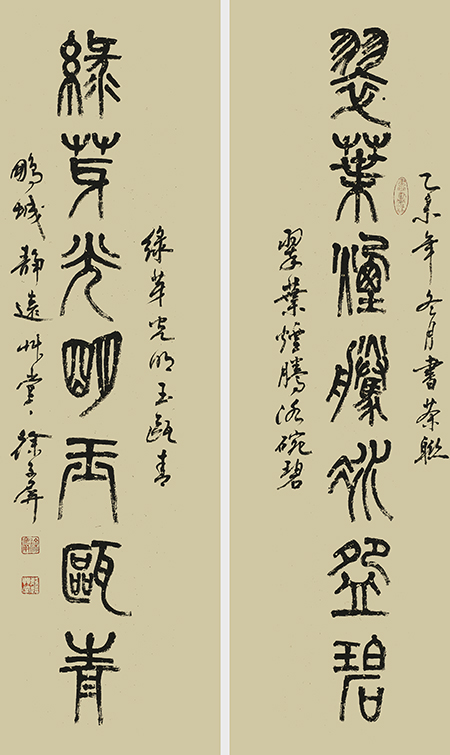 乙未年冬月書茶聯
翠葉煙騰冰盌碧
翠葉煙騰冰碗碧
綠芽光明玉甌青
綠芽光明玉甌青
鵬城靜遠艸堂徐